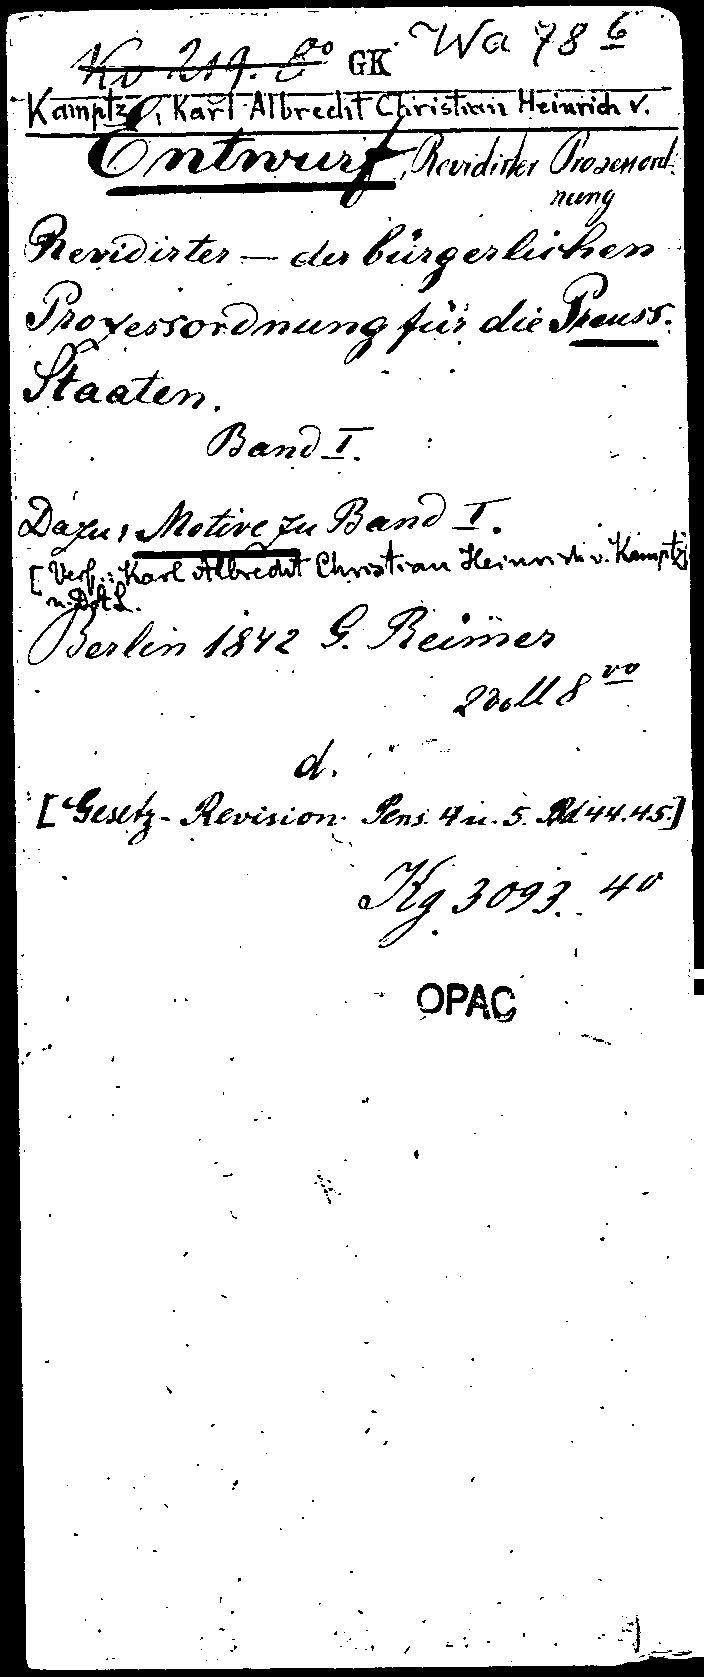 Kv 219. 8vo GK Wa 78 6
Kamptz, Karl Albrecht Christian Heinrich v.
Entwurf, Revidirter Prozessord-
nung
Revidirter — der bürgerlichen
Prozessordnung für die Preuss.
Staaten.
Band I.
Dazu: Motive zu Band I.
[Verf.: Karl Albrecht Christian Heinrich v. Kamptz
Berlin 1842 G. Reimer
2 voll 8vo
d.
[Gesetz-Revision. Pens. 4 u. 5. Bd 44.45.]
Kg 3093. 40
OPAC